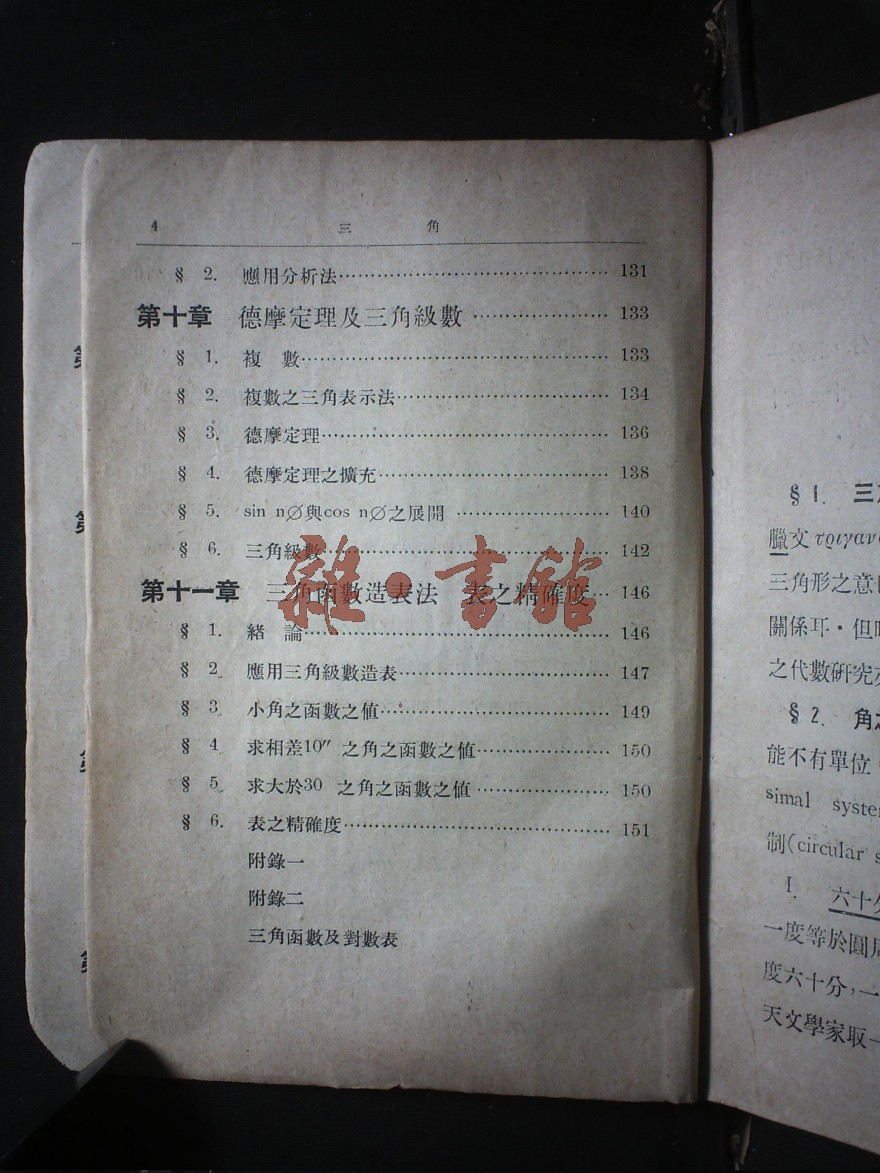 4 三 角
§ 2. 應用分析法 131
第十章 德摩定理及三角級數 133
§ 1. 複 數 133
§ 2. 複數之三角表示法 134
§ 3. 德摩定理 136
§ 4. 德摩定理之擴充 138
§ 5. sin n∅與cos n∅之展開 140
§ 6. 三角級數 142
第十一章 三角函數造表法 表之精確度 146
§ 1. 緒 論 146
§ 2. 應用三角級數造表 147
§ 3 小角之函數之値 149
§ 4 求相差10″ 之角之函數之値 150
§ 5 求大於30 之角之函數之値 150
§ 6. 表之精確度 151
附錄一
附錄二
三角函數及對數表
雜·書館
§ 1. 三
臘文
三角形之意
關係耳·但
之代數硏究
§ 2. 角
能不有單位
simal
制(circular
I. 六十
一度等於圓
度六十分，一
天文學家取一